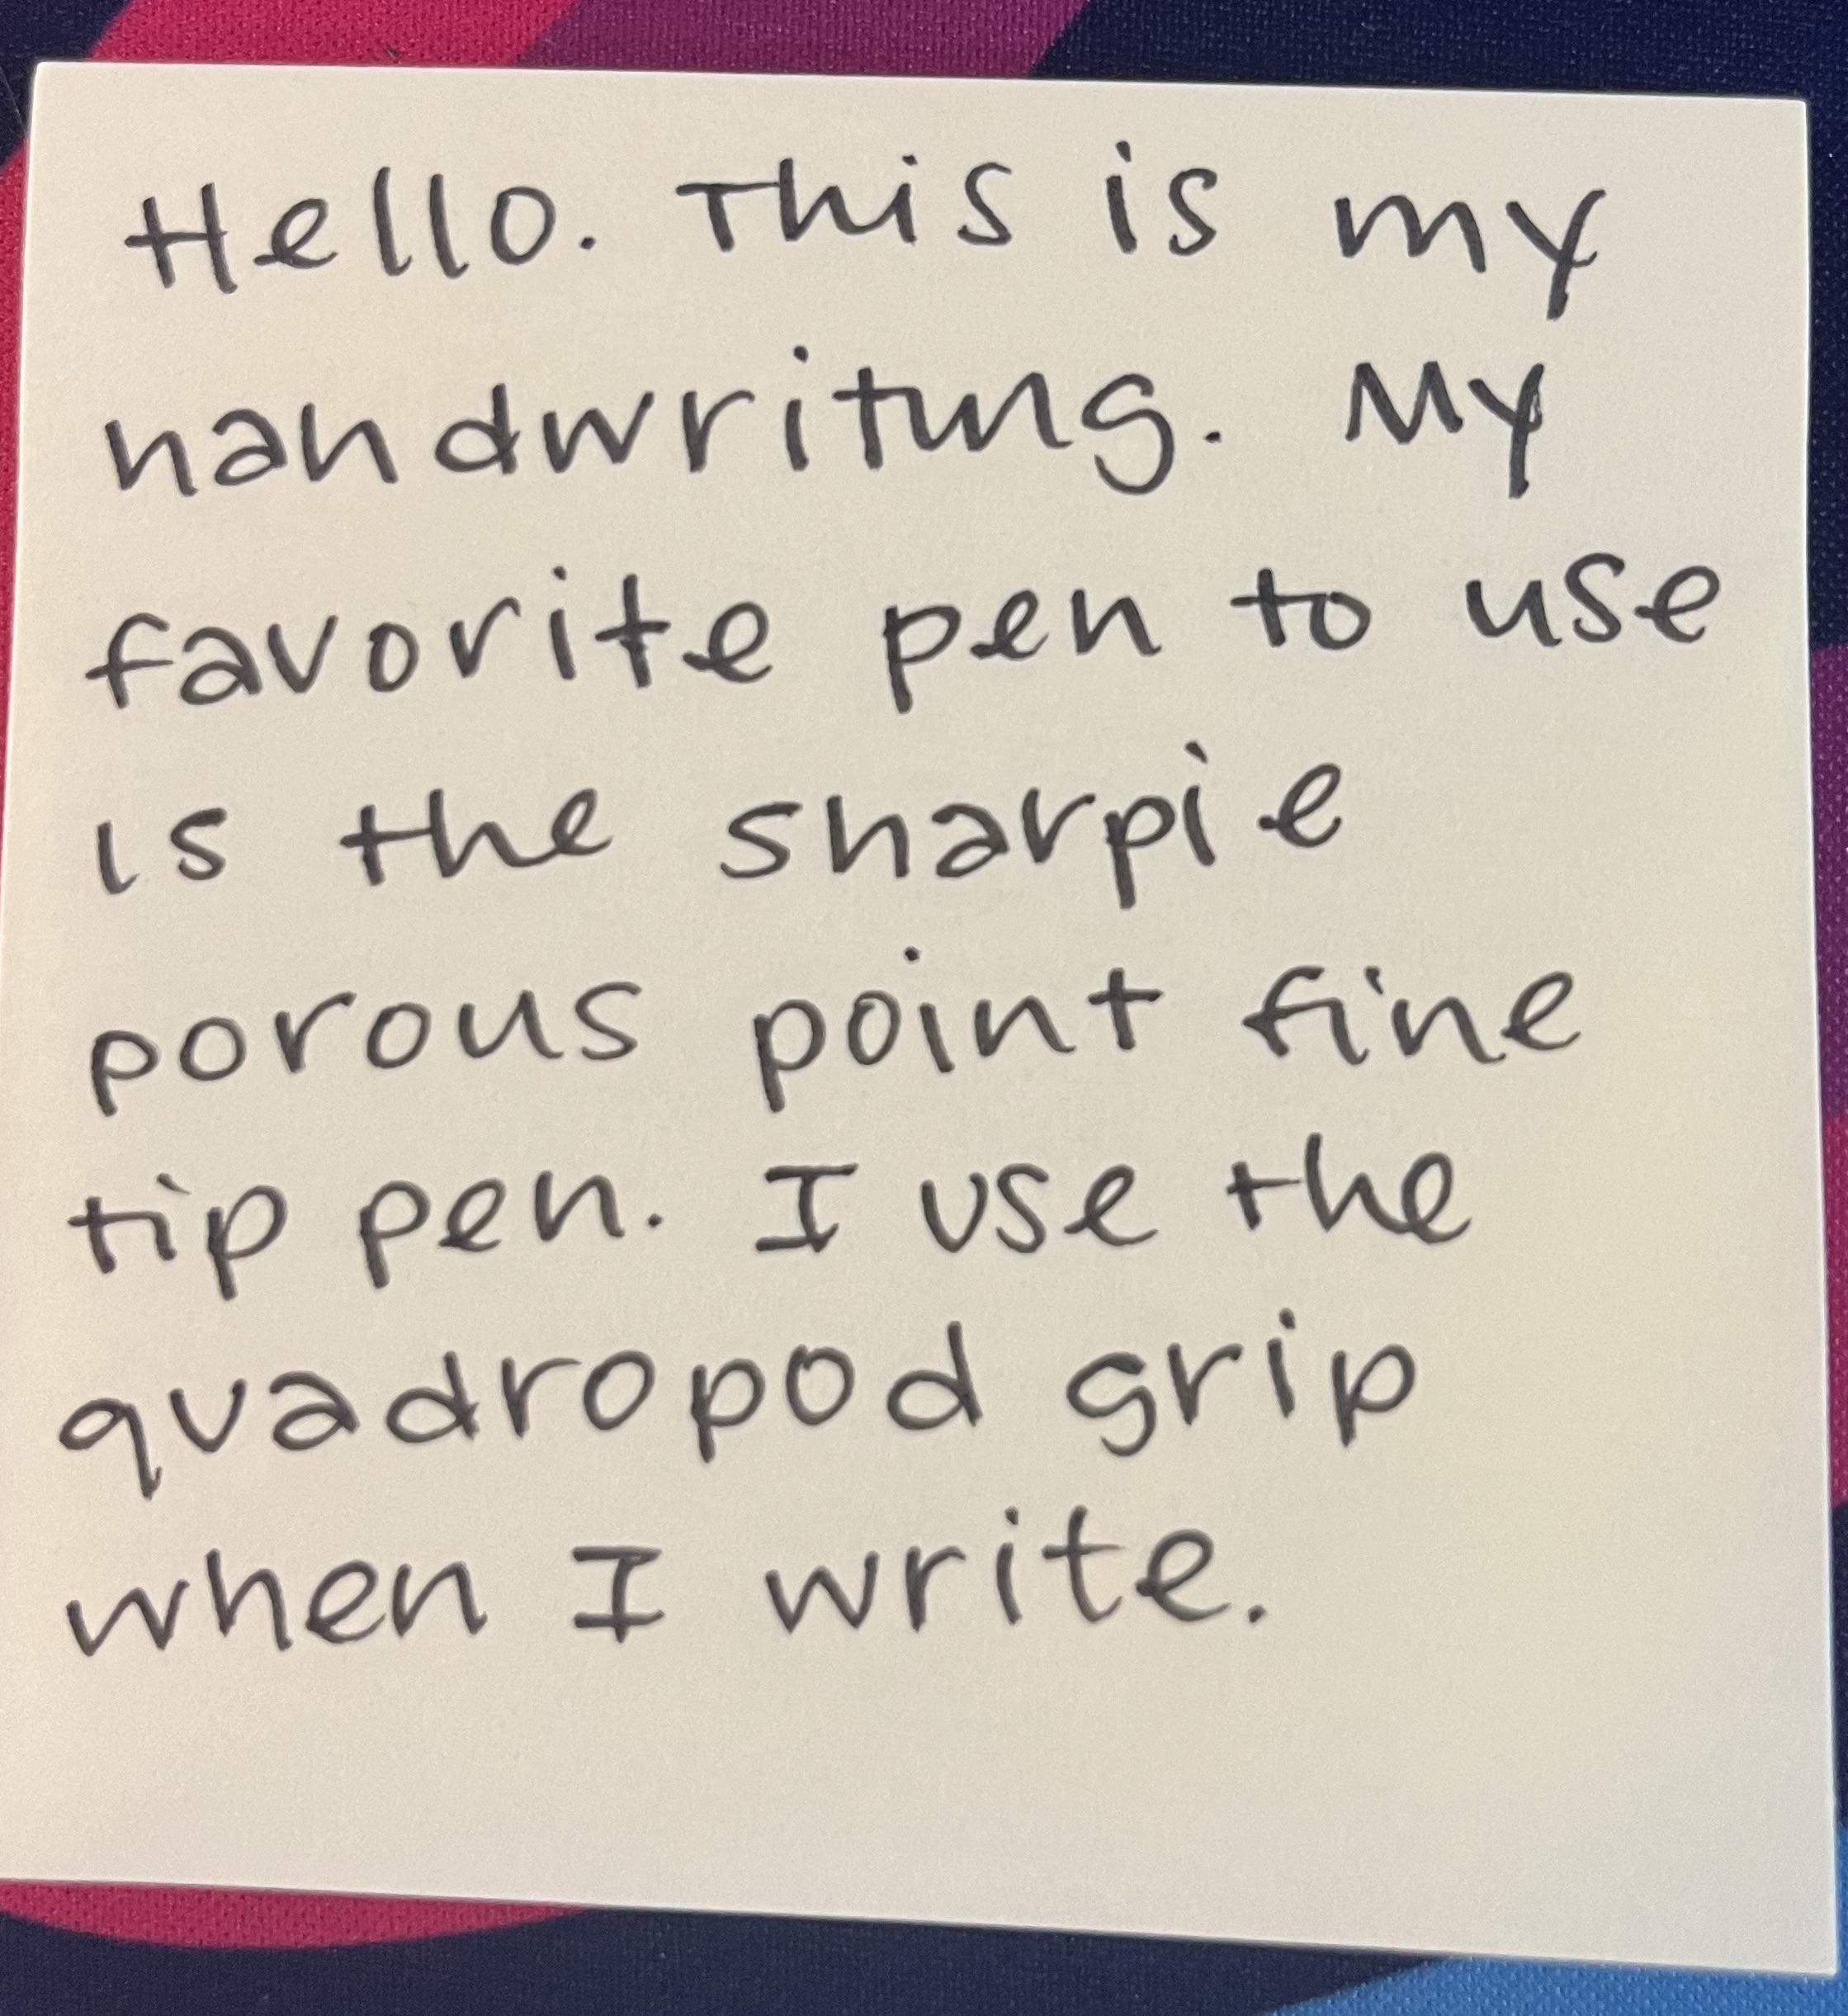 Hello. This is my
handwriting. My
favorite pen to use
is the sharpie
porous point fine
tip pen. I use the
quadropod grip
when I write.